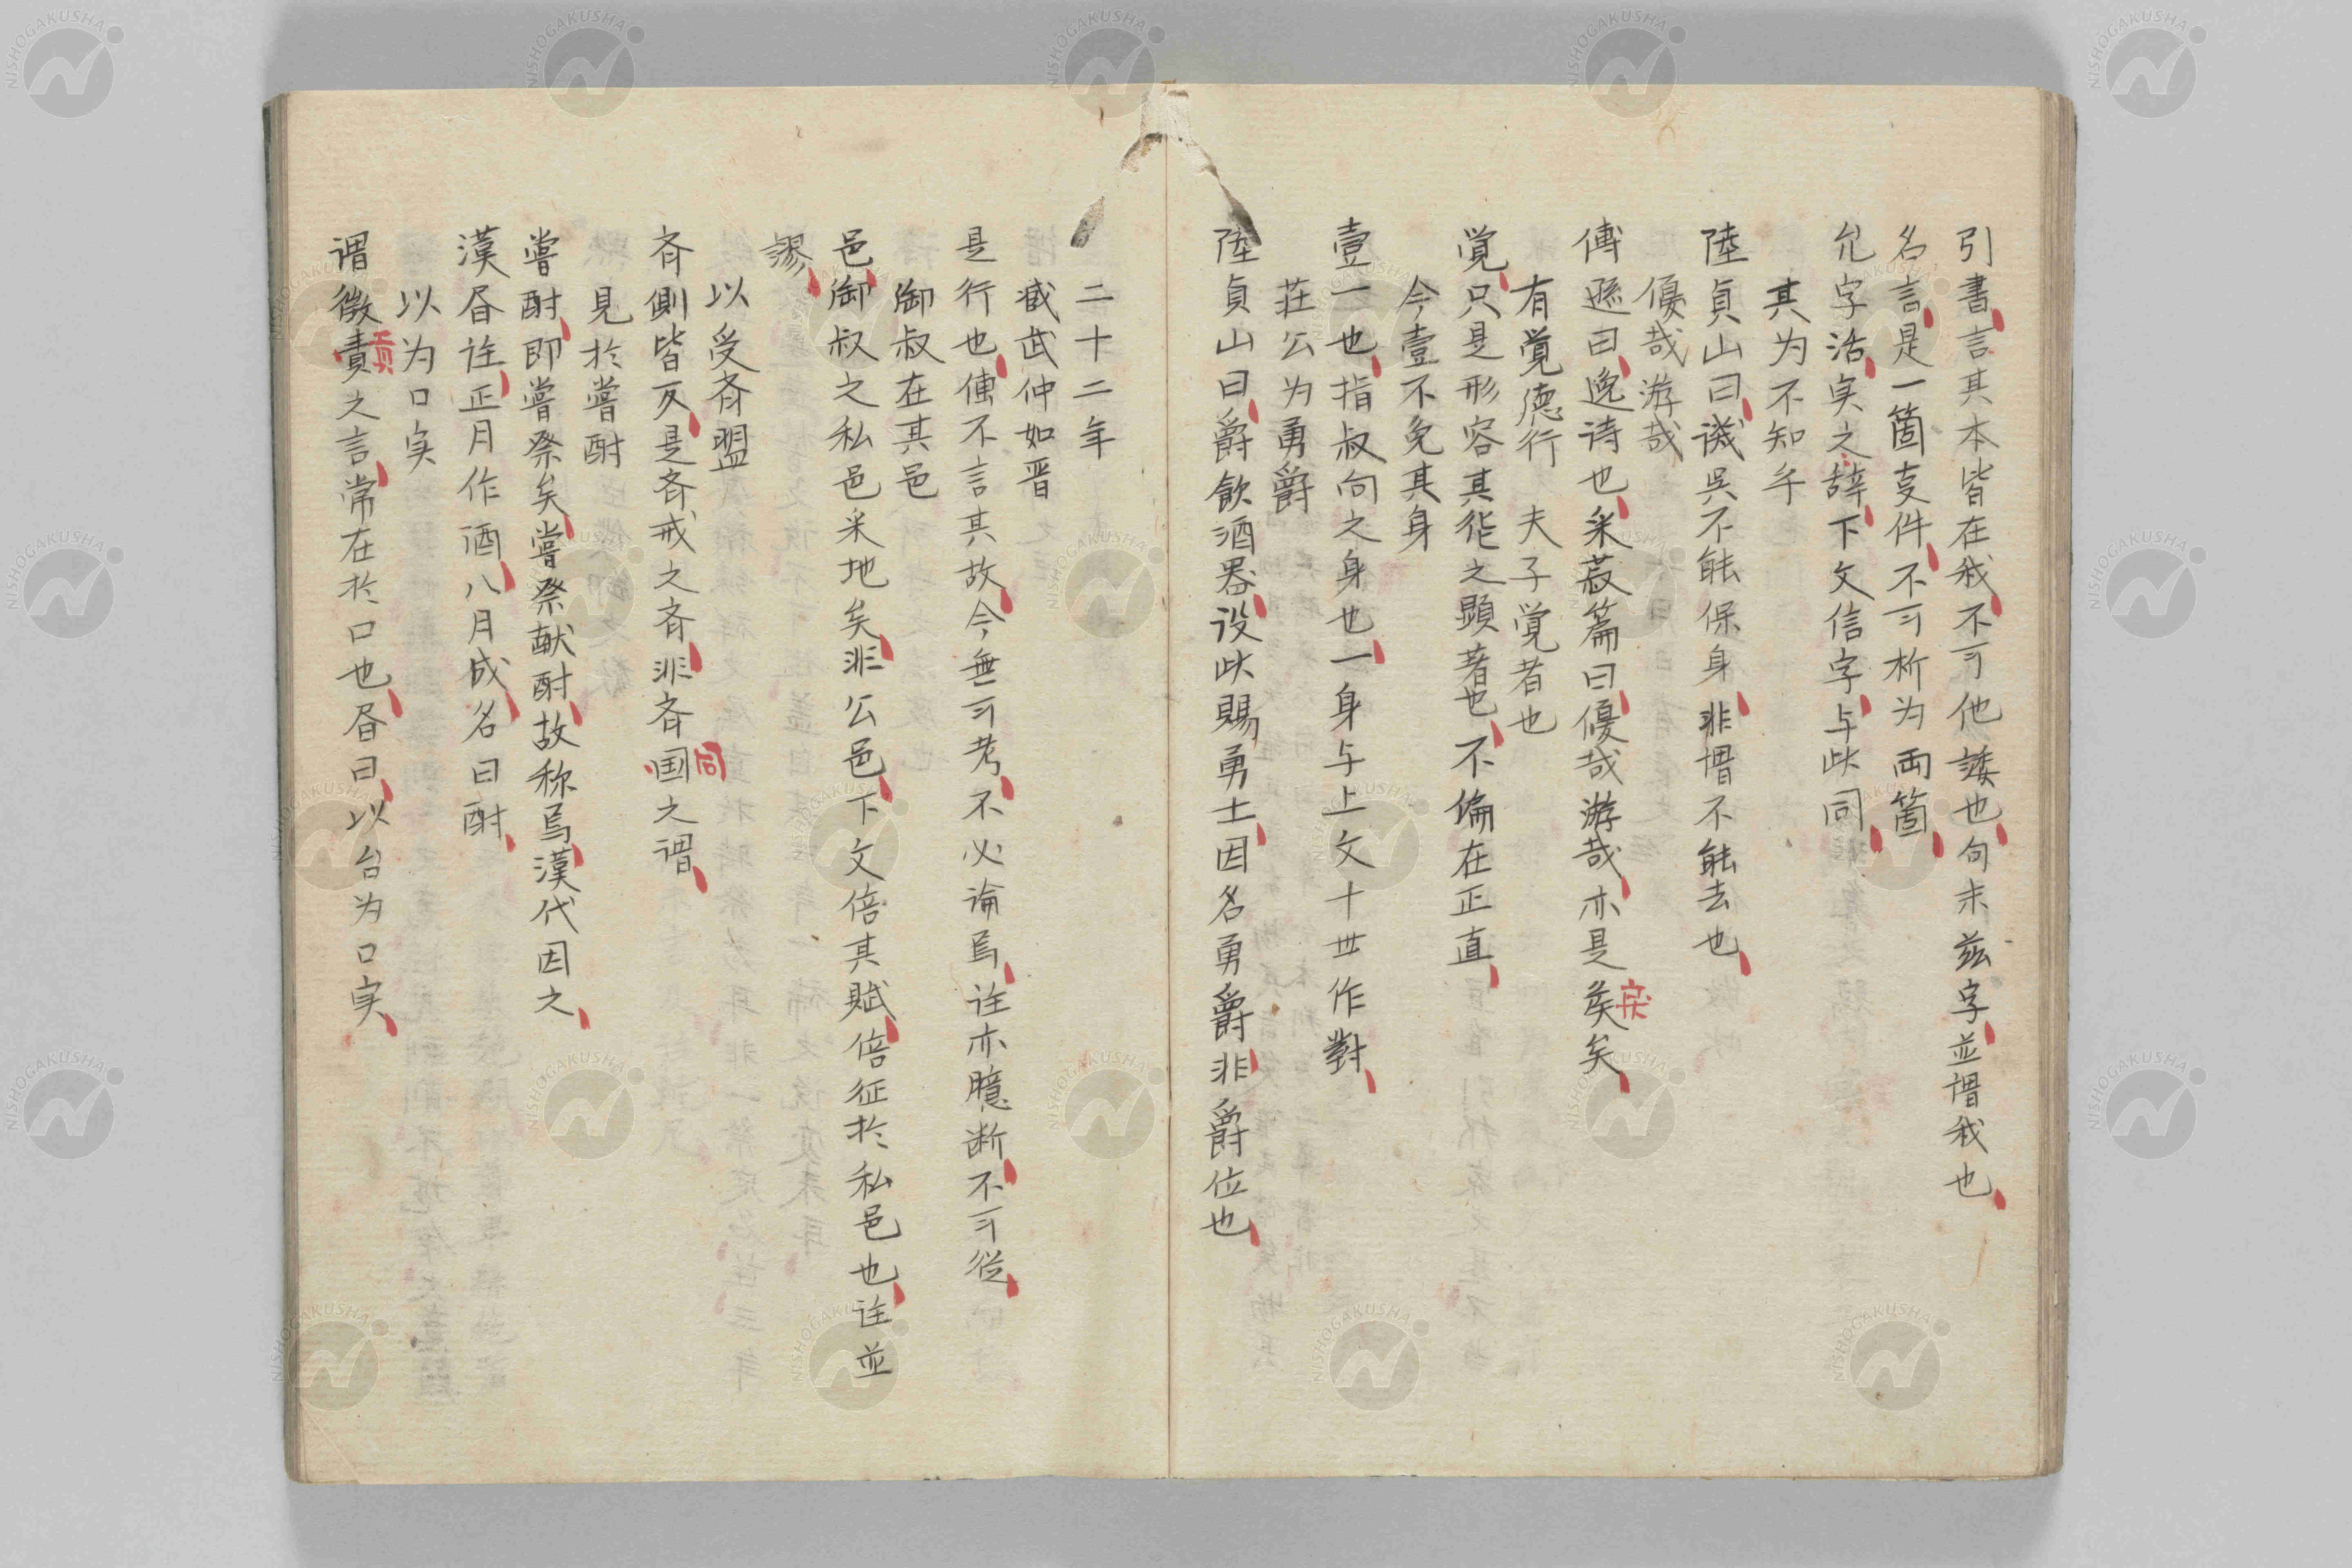 引書、言其本皆在我、不可他諉也、句末茲字、並謂我也、
名言、是一箇事件、不可析為両箇、
允字活、実之辞、下文信字、与此同、
其为不知乎
陸貞山曰、譏吳不能保身、非謂不能去也、
優哉游哉
傅遜曰、逸诗也、采菽篇曰、優哉游哉、亦是戾矣、
戾
有覚德行 夫子覚者也
覚、只是形容其徳之顕著也、不偏在正直、
今壹不免其身
壹一也、指叔向之身也、一身与上文十世作對、
莊公为勇爵
陸貞山曰、爵飲酒器、设此賜勇士、因名勇爵、非爵位也、
二十二年
臧武仲如晋
是行也、傳不言其故、今無可考、不必論焉、註亦臆断、不可從、
御叔在其邑
邑、御叔之私邑采地矣、非公邑、下文倍其賦、倍征於私邑也、註並
謬、
以受斉盟
斉側皆反、是斉戒之斉、非斉国之谓、
同
見於嘗酎
嘗酎、即嘗祭矣、嘗祭献酎、故称焉、漢代因之、
漢昏註、正月作酒、八月成、名曰酎、
以为口実
谓徵責之言、常在於口也、昏曰、以台为口実、
貢
NISHOGAKUSHA